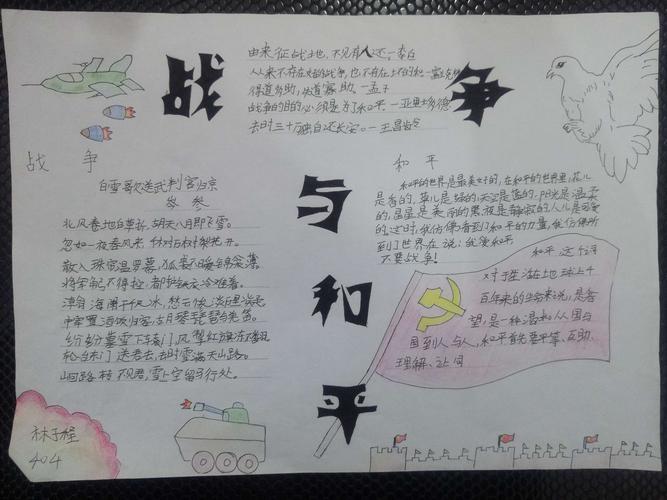 战争与和平
由来征战地，不见有人还。—李白
从来不存在好的战争，也不存在坏的和—富兰克林
得道多助，失道寡助。—孟子
战争的目的必须是为了和平—亚里士多德
去时三十万，独自还长安。—王昌龄
战 争
白雪歌送武判官归京
岑 参
北风卷地白草折，胡天八月即飞雪。
忽如一夜春风来，千树万树梨花开。
散入珠帘湿罗幕，狐裘不暖锦衾薄。
将军角弓不得控，都护铁衣冷难着。
瀚海阑干百丈冰，愁云惨淡万里凝。
中军置酒饮归客，胡琴琵琶与羌笛。
纷纷暮雪下辕门，风掣红旗冻不翻。
轮台东门送君去，去时雪满天山路。
山回路转不见君，雪上空留马行处。
和 平
和平的世界是最美好的，在和平的世界里，花儿
是香的，草儿是绿的，天空是蓝的，阳光是温柔
的，星星是美丽的，黑夜是静寂的，人儿是可爱
的。这时，我仿佛看到了和平的力量，我仿佛听
到了世界在说：我爱和平
不要战争！
和平 这个词
对于生活在地球上千
百年来的生命来说，是希
望，是一种温和，从国与
国到人与人，和平首先要平等、互助、
理解、让同
林子程
404